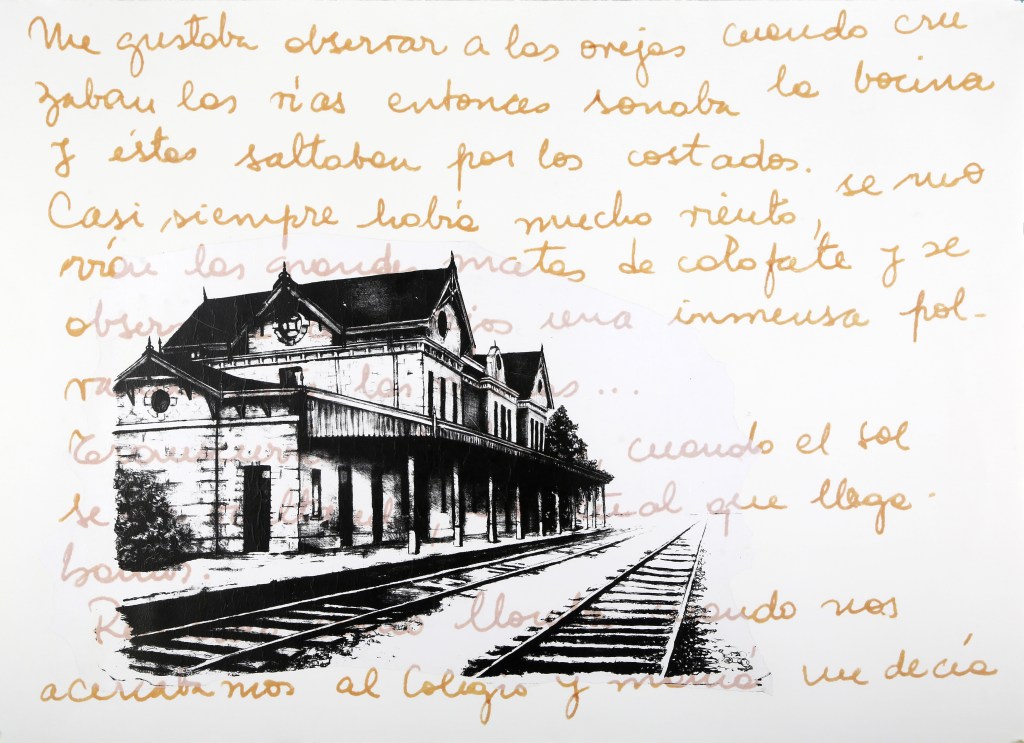 Me gustaba observar a las ovejas cuando cru
zaban las vías entonces sonaba la bocina
y éstas saltaban por los costados.
Casi siempre había mucho viento, se mo
vían las grandes matas de calafate y se
una inmensa pol-
...
cuando el sol
se que llega-
bamos.
llorado cuando nos
acercabamos al Colegio y mamá me decía